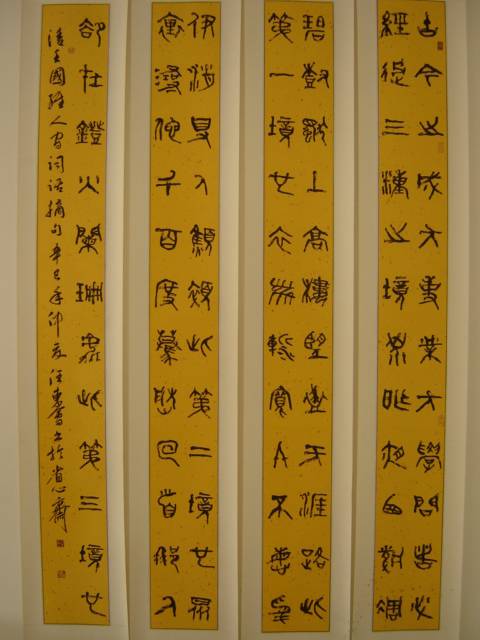 古今之成大事業大學問者必
經過三種之境界昨夜西風凋
碧樹獨上高樓望盡天涯路此
第一境也衣帶漸寬終不悔為
伊消得人憔悴此第二境也眾
裏尋他千百度驀然回首那人
卻在鐙火闌珊處此第三境也
清王國維人間詞話摘句辛巳年仲夏汪東書於省心齋